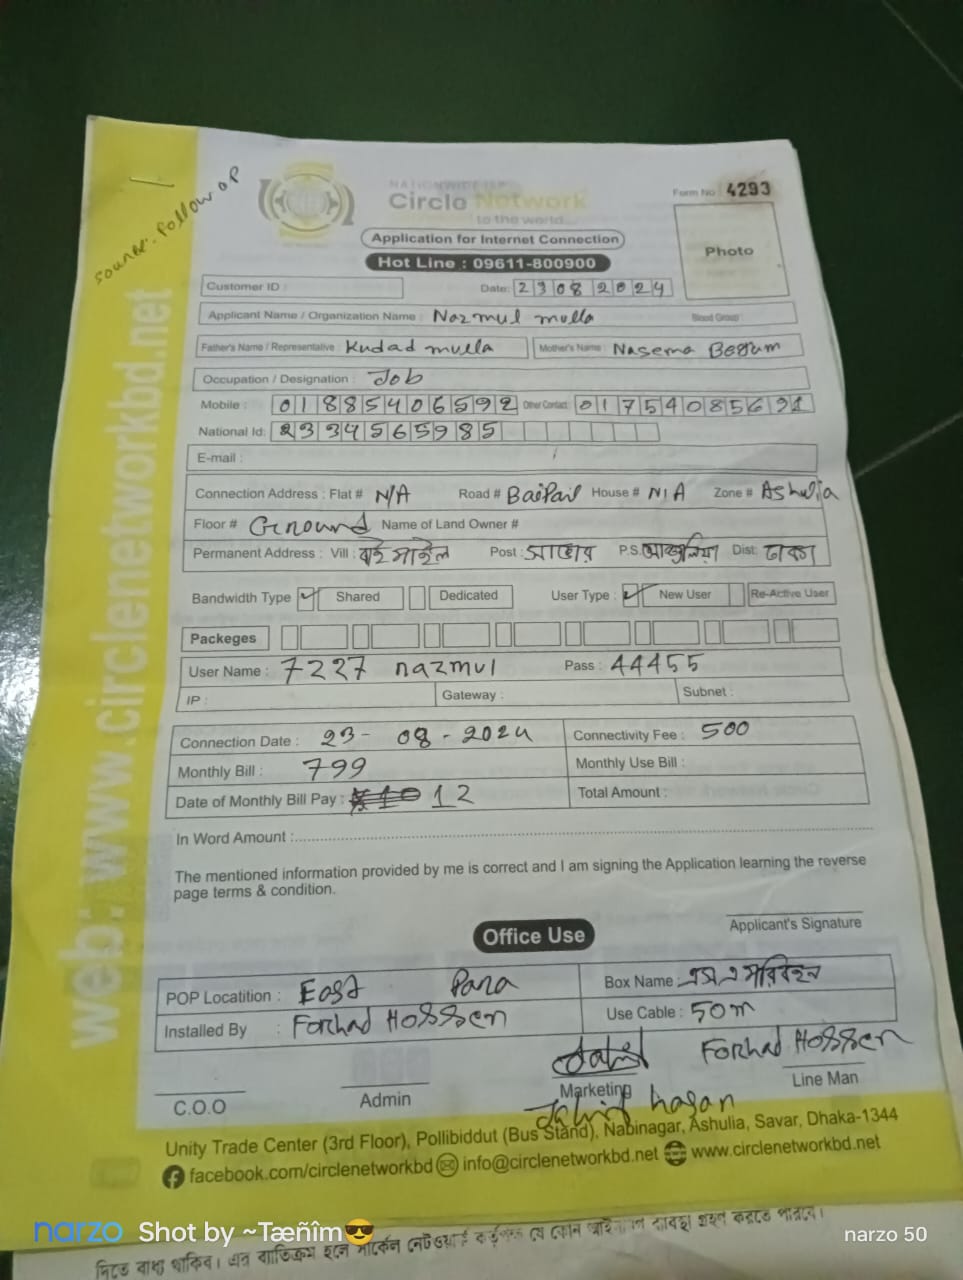 source: follow up
NATIONWIDE ISP
Circle Network
to the world...
Form No : 4293
Application for Internet Connection
Photo
Hot Line : 09611-800900
Customer ID :
Date: 23082024
Applicant Name / Organization Name : Nazmul mulla
Blood Group :
Father's Name / Representative : Kudad mulla
Mother's Name : Nasema Begum
Occupation / Designation : Job
Mobile : 01885406592 Other Contact:
National Id: 2334565985
E-mail :
Connection Address : Flat # N/A Road # Baipail House # N/A Zone # Ashulia
Floor # Ground Name of Land Owner #
Permanent Address : Vill : বাইপাইল Post : সাভার P.S. আশুলিয়া Dist: ঢাকা
Bandwidth Type Shared Dedicated User Type : New User Re-Active User
Packeges
User Name : 7227 nazmul Pass : 44455
IP : Gateway : Subnet :
Connection Date : 23-08-2024 Connectivity Fee : 500
Monthly Bill : 799 Monthly Use Bill :
Date of Monthly Bill Pay : 12 Total Amount :
In Word Amount :
The mentioned information provided by me is correct and I am signing the Application learning the reverse
page terms & condition.
Applicant's Signature
Office Use
POP Locatition : East Para Box Name :
Installed By : Forhad Hossen Use Cable : 50m
Forhad Hossen
C.O.O Admin Marketing Line Man
Jahid hasan
Unity Trade Center (3rd Floor), Pollibiddut (Bus Stand), Nabinagar, Ashulia, Savar, Dhaka-1344
facebook.com/circlenetworkbd info@circlenetworkbd.net www.circlenetworkbd.net
web: www.circlenetworkbd.net
narzo Shot by ~Tæñîm😎 narzo 50